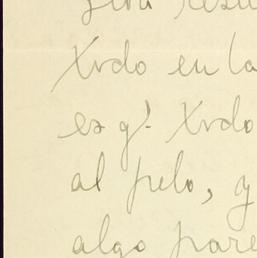 Xvdo en la
es q! Xvdo
al pelo, q
algo pare